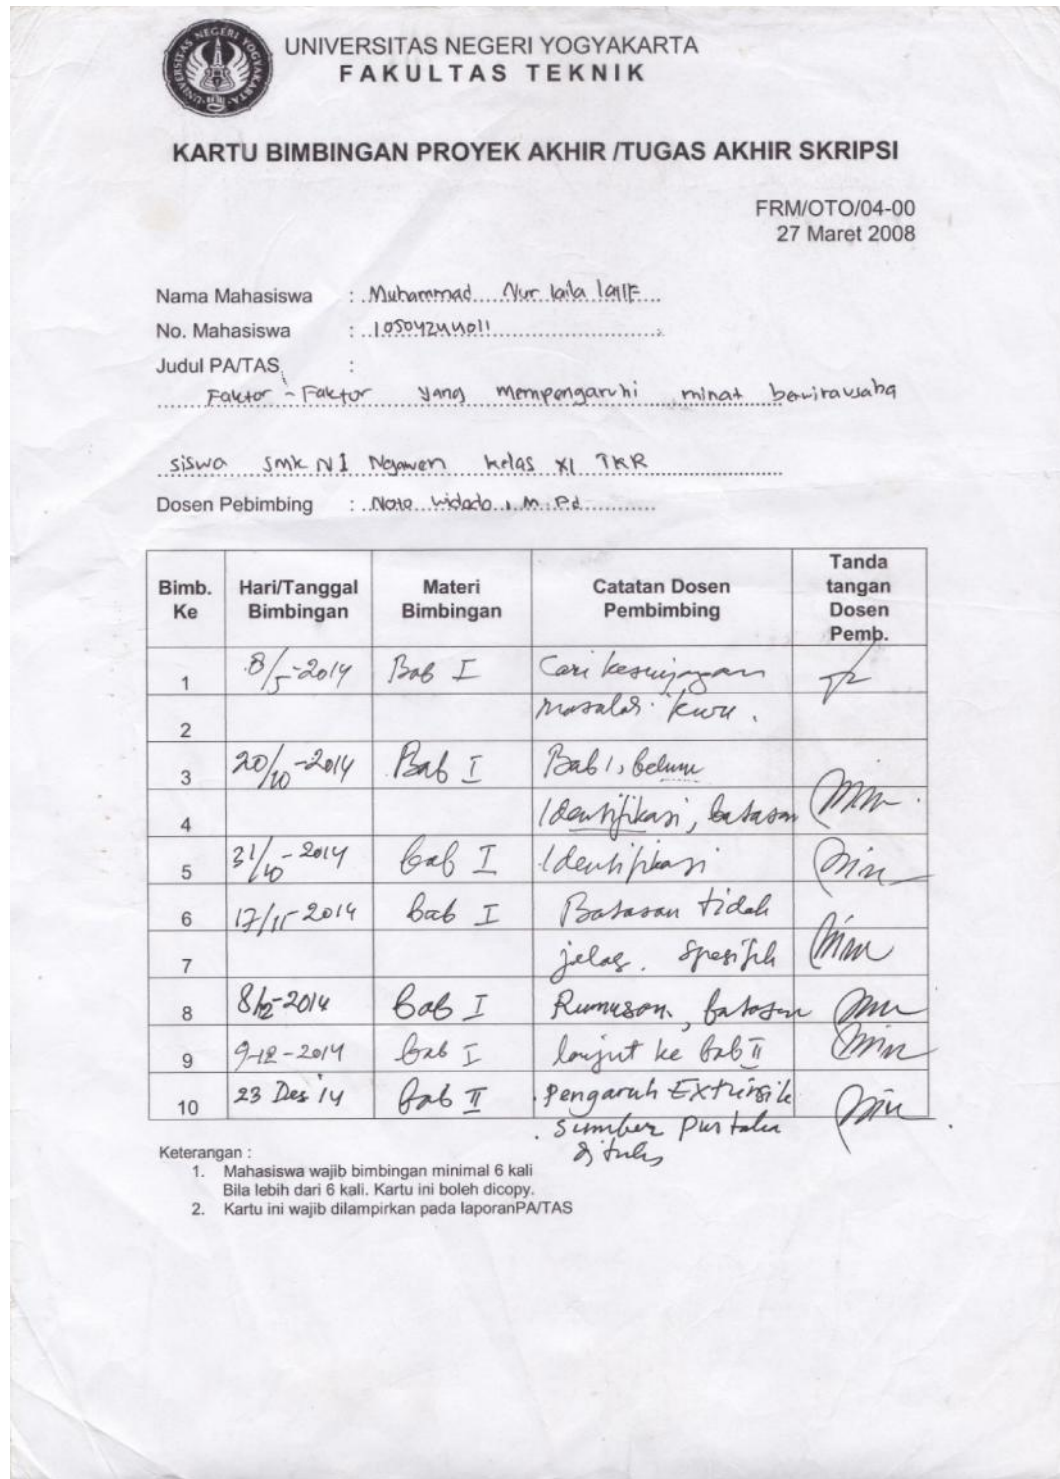 UNIVERSITAS NEGERI YOGYAKARTA
FAKULTAS TEKNIK
KARTU BIMBINGAN PROYEK AKHIR /TUGAS AKHIR SKRIPSI
FRM/OTO/04-00
27 Maret 2008
Nama Mahasiswa : Muhammad Nur laila
No. Mahasiswa : 10504244011
Judul PA/TAS :
Faktor - Faktor yang mempengaruhi minat berwirausaha
siswa SMK N 1 Ngawen kelas XI TKR
Dosen Pebimbing : Noto Widodo, M.Pd
Bimb. Ke Hari/Tanggal Bimbingan Materi Bimbingan Catatan Dosen Pembimbing Tanda tangan Dosen Pemb.
1 8/5-2014 Bab I Cari kesenjangan
2 masalah
3 20/10-2014 Bab I Bab I, belum
4 Identifikasi, batasan
5 31/10-2014 bab I Identifikasi
6 17/11-2014 bab I Batasan tidak
7 jelas. spesifik
8 8/12-2014 Bab I Rumusan, batasan
9 9-12-2014 bab I lanjut ke bab II
10 23 Des '14 Bab II . Pengaruh Extrinsik
. sumber pustaka
ditulis
Keterangan :
1. Mahasiswa wajib bimbingan minimal 6 kali
Bila lebih dari 6 kali. Kartu ini boleh dicopy.
2. Kartu ini wajib dilampirkan pada laporanPA/TAS